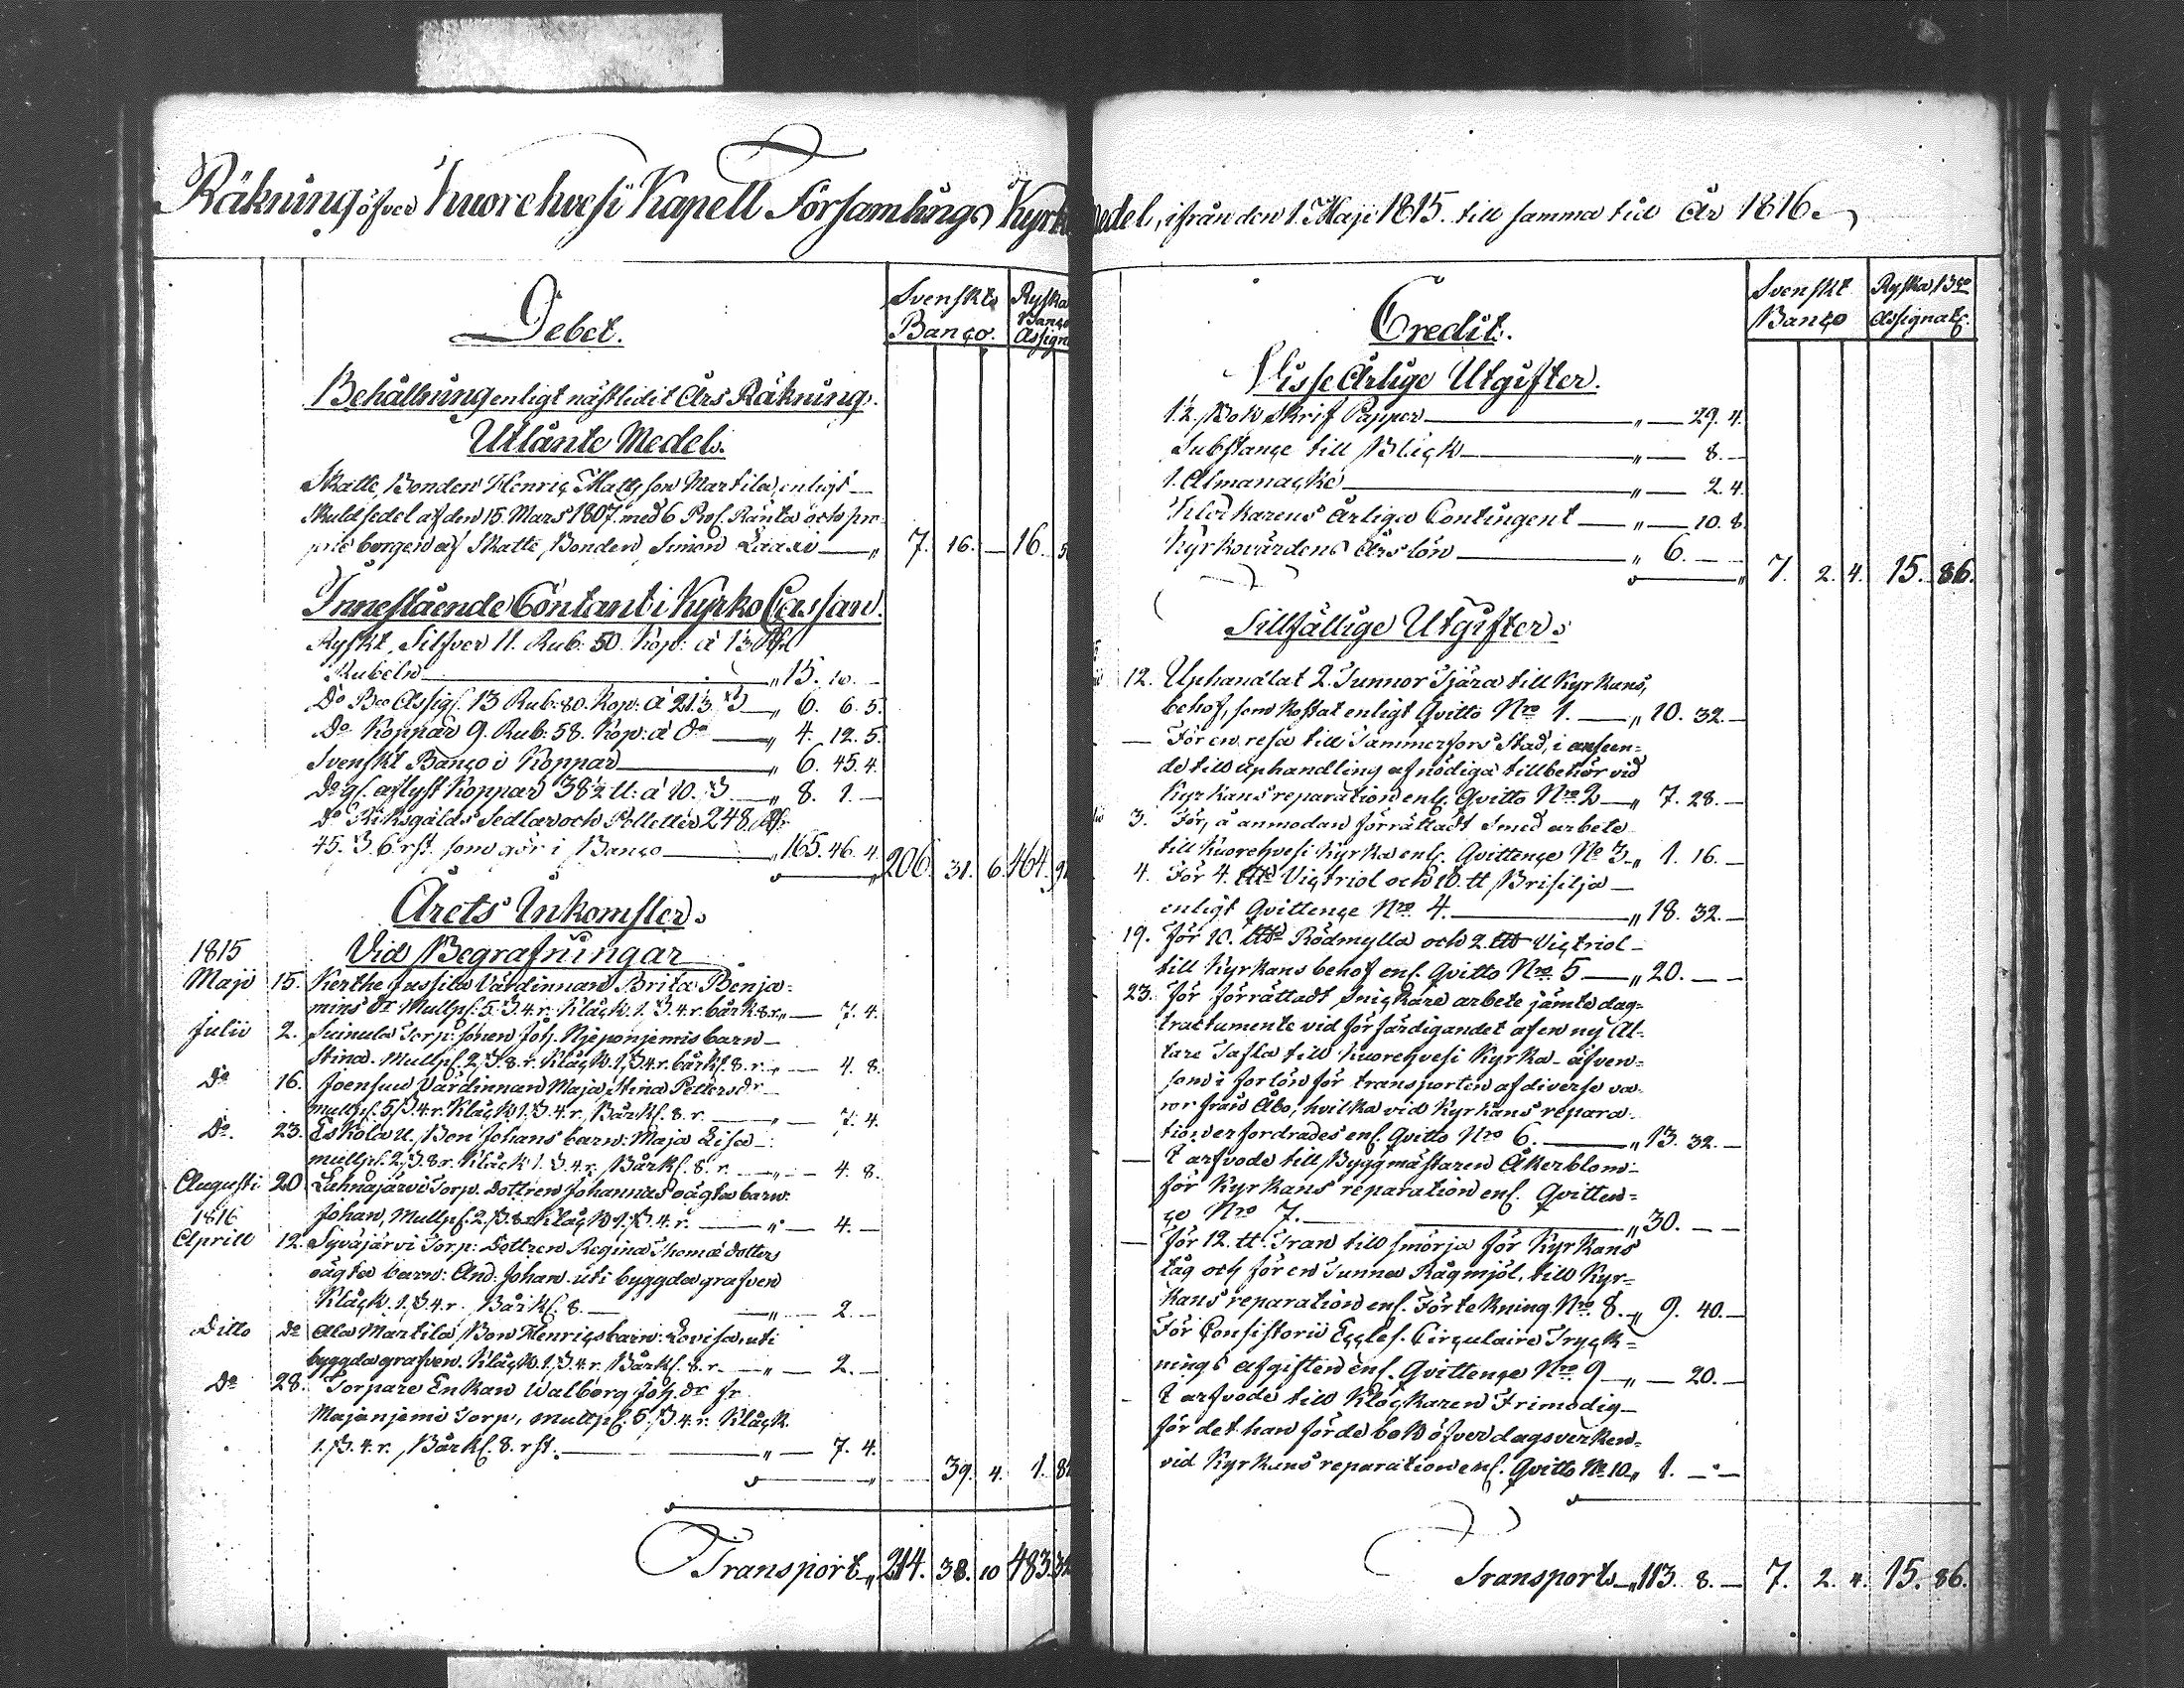 Räkning öfver Kuorehvesi Kapell Församlings Kyrko Medel, ifrån den 1. Maji 1815. till samma tid År 1816.
Debet.
Svenskt Banço.
Ryska Banço Assign
Behållning enligt nästledit Års Räkning.
Utlånte Medel.
Skatte Bonden Henriç Mattsson Martila, enligt
Skuldsedel af den 15. Mars 1807. med 6 Prç. Ränta och pro-
prie borgen af Skatte Bonden Simon Laaxi — " 7. 16. — 16. 5
Innestående Contant i Kyrko Cassan.
Ryskt Silfver 11. Rub: 50. Kop: à
Rubeln — " 15. 10. —
Do Bco Assig. 13 Rub: 80. Kop: à 21⅓ ß — " 6. 6. 5.
Do Koppar 9. Rub: 58. Kop: à do — " 4. 12. 5.
Svenskt Banço i Koppar — " 6. 45. 4.
Do gl. aflyst Koppar 38½ ll: à 10. ß — " 8. 1. —
Do Riksgälds Sedlar och Polletter 248 Rd
45. ß. 6. rst. som gör i Banço — " 165. 46. 4.
" 206. 31. 6. 464. 9
Årets Inkomster.
1815 Vid Begrafningar
Maji 15. Kerthe Jussila Värdinnan Brita Benja-
mins dr Mullpf. 5. ß. 4. r. Kläck. 1. ß. 4. r. bårk. 8 r. " — 7. 4.
Julii 2. Suinula Torp: sonen Joh. Njeponjemis barn
Stina. Mullpf. 2. ß. 8. r. Kläck. 1. ß. 4. r. bårkl. 8. r. — 4. 8.
Do 16. Joensuu Värdinnan Maja Stina Petters dr
mullpf. 5. ß. 4. r. Kläck. 1. ß. 4. r. Bårkl. 8. r. — 7. 4.
Do. 23. Eskola U. Bon Johans barn: Maja Lisa
mullpf. 2. ß. 8 r. Kläck. 1. ß. 4. r. Bårkl. 8. r. — " — 4. 8.
Augusti 20. Lahnajärvi Torp. Dottren Johannas oägta barn:
1816 Johan, Mullpf. 2. ß. 8 r. Kläck. 1. ß. 4. r. — " — 4. —
Aprill 12. Syväjärvi Torp: Dottren Regina Thomæ dotters
oägta barn: And: Johan. uti byggda grafven
Kläck. 1. ß. 4. r. Bårkl. 8. — " — 2. —
Ditto do Ala Martila Bon Henriçs barn: Lovisa, uti
byggda grafven. Kläck. 1. ß. 4. r. Bårkl. 8. r. — " — 2. —
Do 28. Torpare Enkan Walborg Joh. dr fr.
Majanjemi Torp, mullpf. 5. ß. 4. r. Kläck.
1. ß. 4. r. Bårkl. 8. rst. — " — 7. 4.
" 39. 4. 1. 8
Transport " 214. 38. 10 483. 3
Credit.
Svenskt Banço
Ryska Bco Assignatç.
Visse Årlige Utgifter.
1½ Bok Skrif Papper — " — 29. 4.
Substançe till Bläck — " — 8. —
1. Almanacka — " — 2. 4.
Klockarens årliga Contingent — " — 10. 8.
Kyrkovärdens Årslön — " 6. — —
" 7. 2. 4. 15. 86.
Tillfällige Utgifter.
12. Uphandlat 2. Tunnor Tjära till Kyrkans,
behof, som kostat enligt Qvitto Nro 1. — " 10. 32. —
— För en resa till Tammerfors Stad, i anseen-
de till uphandling af nödiga tillbehör vid
Kyrkans reparation enl. Qvitto Nro 2 — " 7. 28. —
3. För, å anmodan förrättadt Smed arbete
till Kuorehvesi Kyrka enl. Qvittençe No 3 " 1. 16. —
4. För 4. Victriol och 10. tt Brisilja
enligt Qvittençe Nro 4. — " 18. 32. —
19. För 10. Rödmylla och 2. Victriol
till Kyrkans behof enl. Qvitto Nro 5 — " 20. — —
23. För förrättadt Snickare arbete jämte dag-
tractamente vid förfärdigandet af en ny Al-
tare Tafla till Kuorehvesi Kyrka äfven-
som i forlön för transporten af diverse va-
ror från Åbo, hvilka vid Kyrkans repara-
tion erfordrades enl. Qvitto Nro 6. — " 13. 32. —
— I arfvode till Byggmästaren Åkerblom
för Kyrkans reparation enl. Qvitten-
çe Nro 7. — " 30. — —
— För 12. tt Tran till smörja för Kyrkans
tåg och för en Tunna Rågmjöl, till Kyr-
kans reparation enl. Förtekning Nro 8. " 9. 40. —
För Consistorii Eccles. Circulaire Tryck-
nings afgiften enl. Qvittençe Nro 9 — " — 20. —
I arfvode till Klockaren Frimodig
för det han förde bok öfver dagsverken
vid Kyrkans reparation enl. Qvitto No 10. " 1. — —
Transport " 113. 8. — 7. 2. 4. 15. 86.